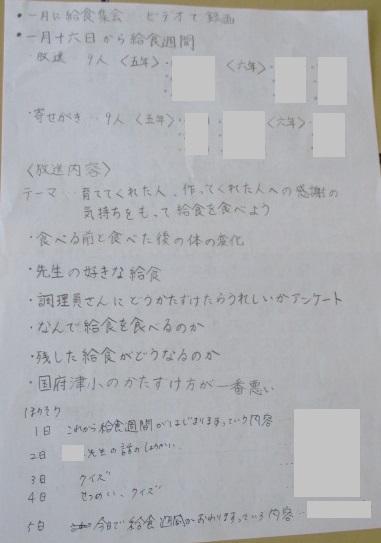 ・一月に給食集会 ビデオで録画
・一月十六日から給食週間
・放送‥9人〈五年〉・ 〈六年〉・
・寄せがき‥9人〈五年〉・ 〈六年〉・
〈放送内容〉
テーマ‥育ててくれた人、作ってくれた人への感謝の
気持ちをもって給食を食べよう
・食べる前と食べた後の体の変化
・先生の好きな給食
・調理員さんにどうかたずけたらうれしいかアンケート
・なんで給食を食べるのか
・残した給食がどうなるのか
・国府津小のかたずけ方が一番悪い
1日 これから給食週間がはじまりますっていう内容
2日 先生の話のしょうかい
3日 クイズ
4日 せつめい、クイズ
5日 今日で給食週間がおわりますっていう内容